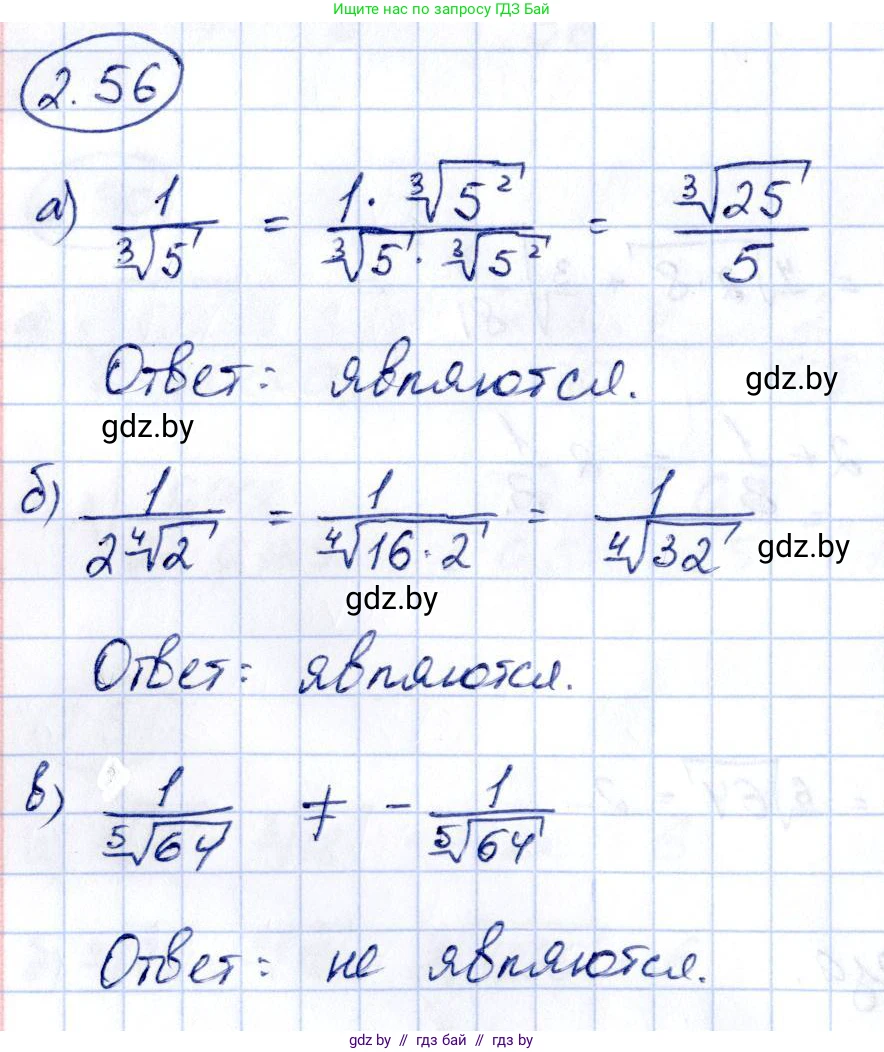 Ищите нас по запросу ГДЗ Бай
2.56
а) 1/∛5 = (1·∛5²)/(∛5·∛5²) = ∛25/5
Ответ: являются.
gdz.by
gdz.by
б) 1/(2∜2) = 1/∜(16·2) = 1/∜32
gdz.by
gdz.by
Ответ: являются.
в) 1/⁵√64 ≠ - 1/⁵√64
Ответ: не являются.
gdz.by // гдз бай // gdz by